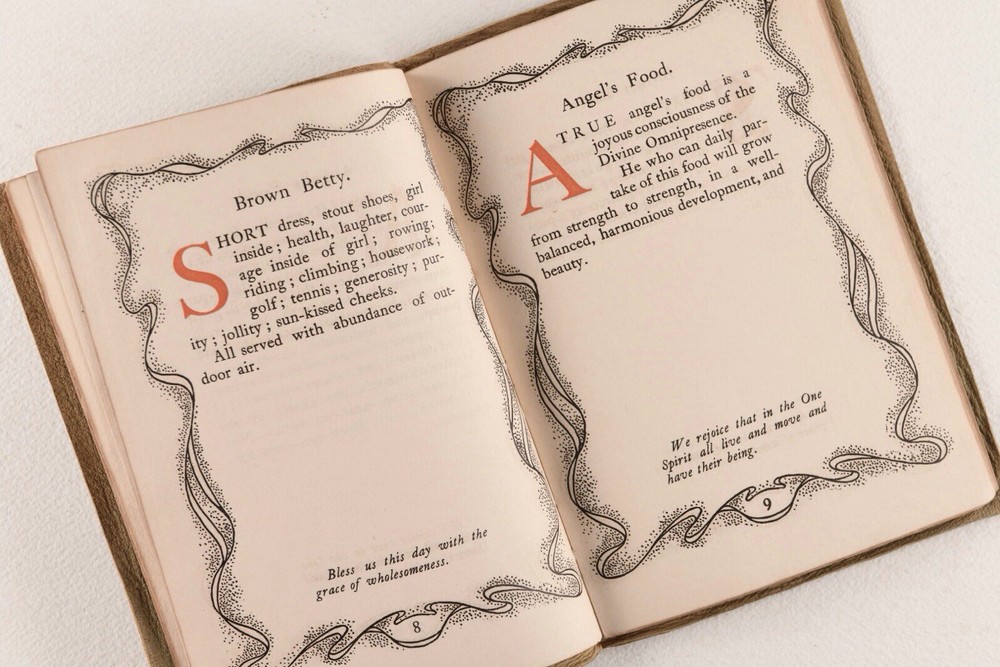 Brown Betty.
SHORT dress, stout shoes, girl
inside; health, laughter, cour-
age inside of girl; rowing;
riding; climbing; housework;
golf; tennis; generosity; pur-
ity; jollity; sun-kissed cheeks.
All served with abundance of out-
door air.
Bless us this day with the
grace of wholesomeness.
8
Angel's Food.
A TRUE angel's food is a
joyous consciousness of the
Divine Omnipresence.
He who can daily par-
take of this food will grow
from strength to strength, in a well-
balanced, harmonious development, and
beauty.
We rejoice that in the One
Spirit all live and move and
have their being.
9